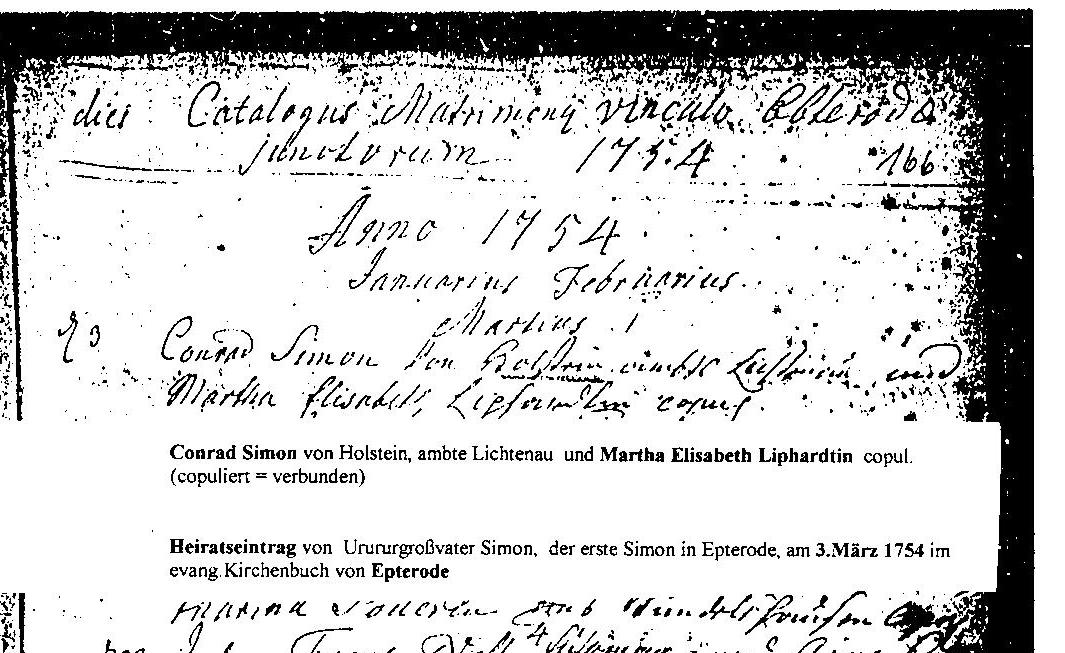 dies Catalogus Matrimonÿ vinculo Ebterodæ
junctorum 1754 166
Anno 1754
Januarius Februarius
Martius
d 3 Conrad Simon von Holstein ambts Lichtenau und
Martha Elisabeth Liphardtin copul.
Conrad Simon von Holstein, ambte Lichtenau und Martha Elisabeth Liphardtin copul.
(copuliert = verbunden)
Heiratseintrag von Urururgroßvater Simon, der erste Simon in Epterode, am 3.März 1754 im
evang.Kirchenbuch von Epterode